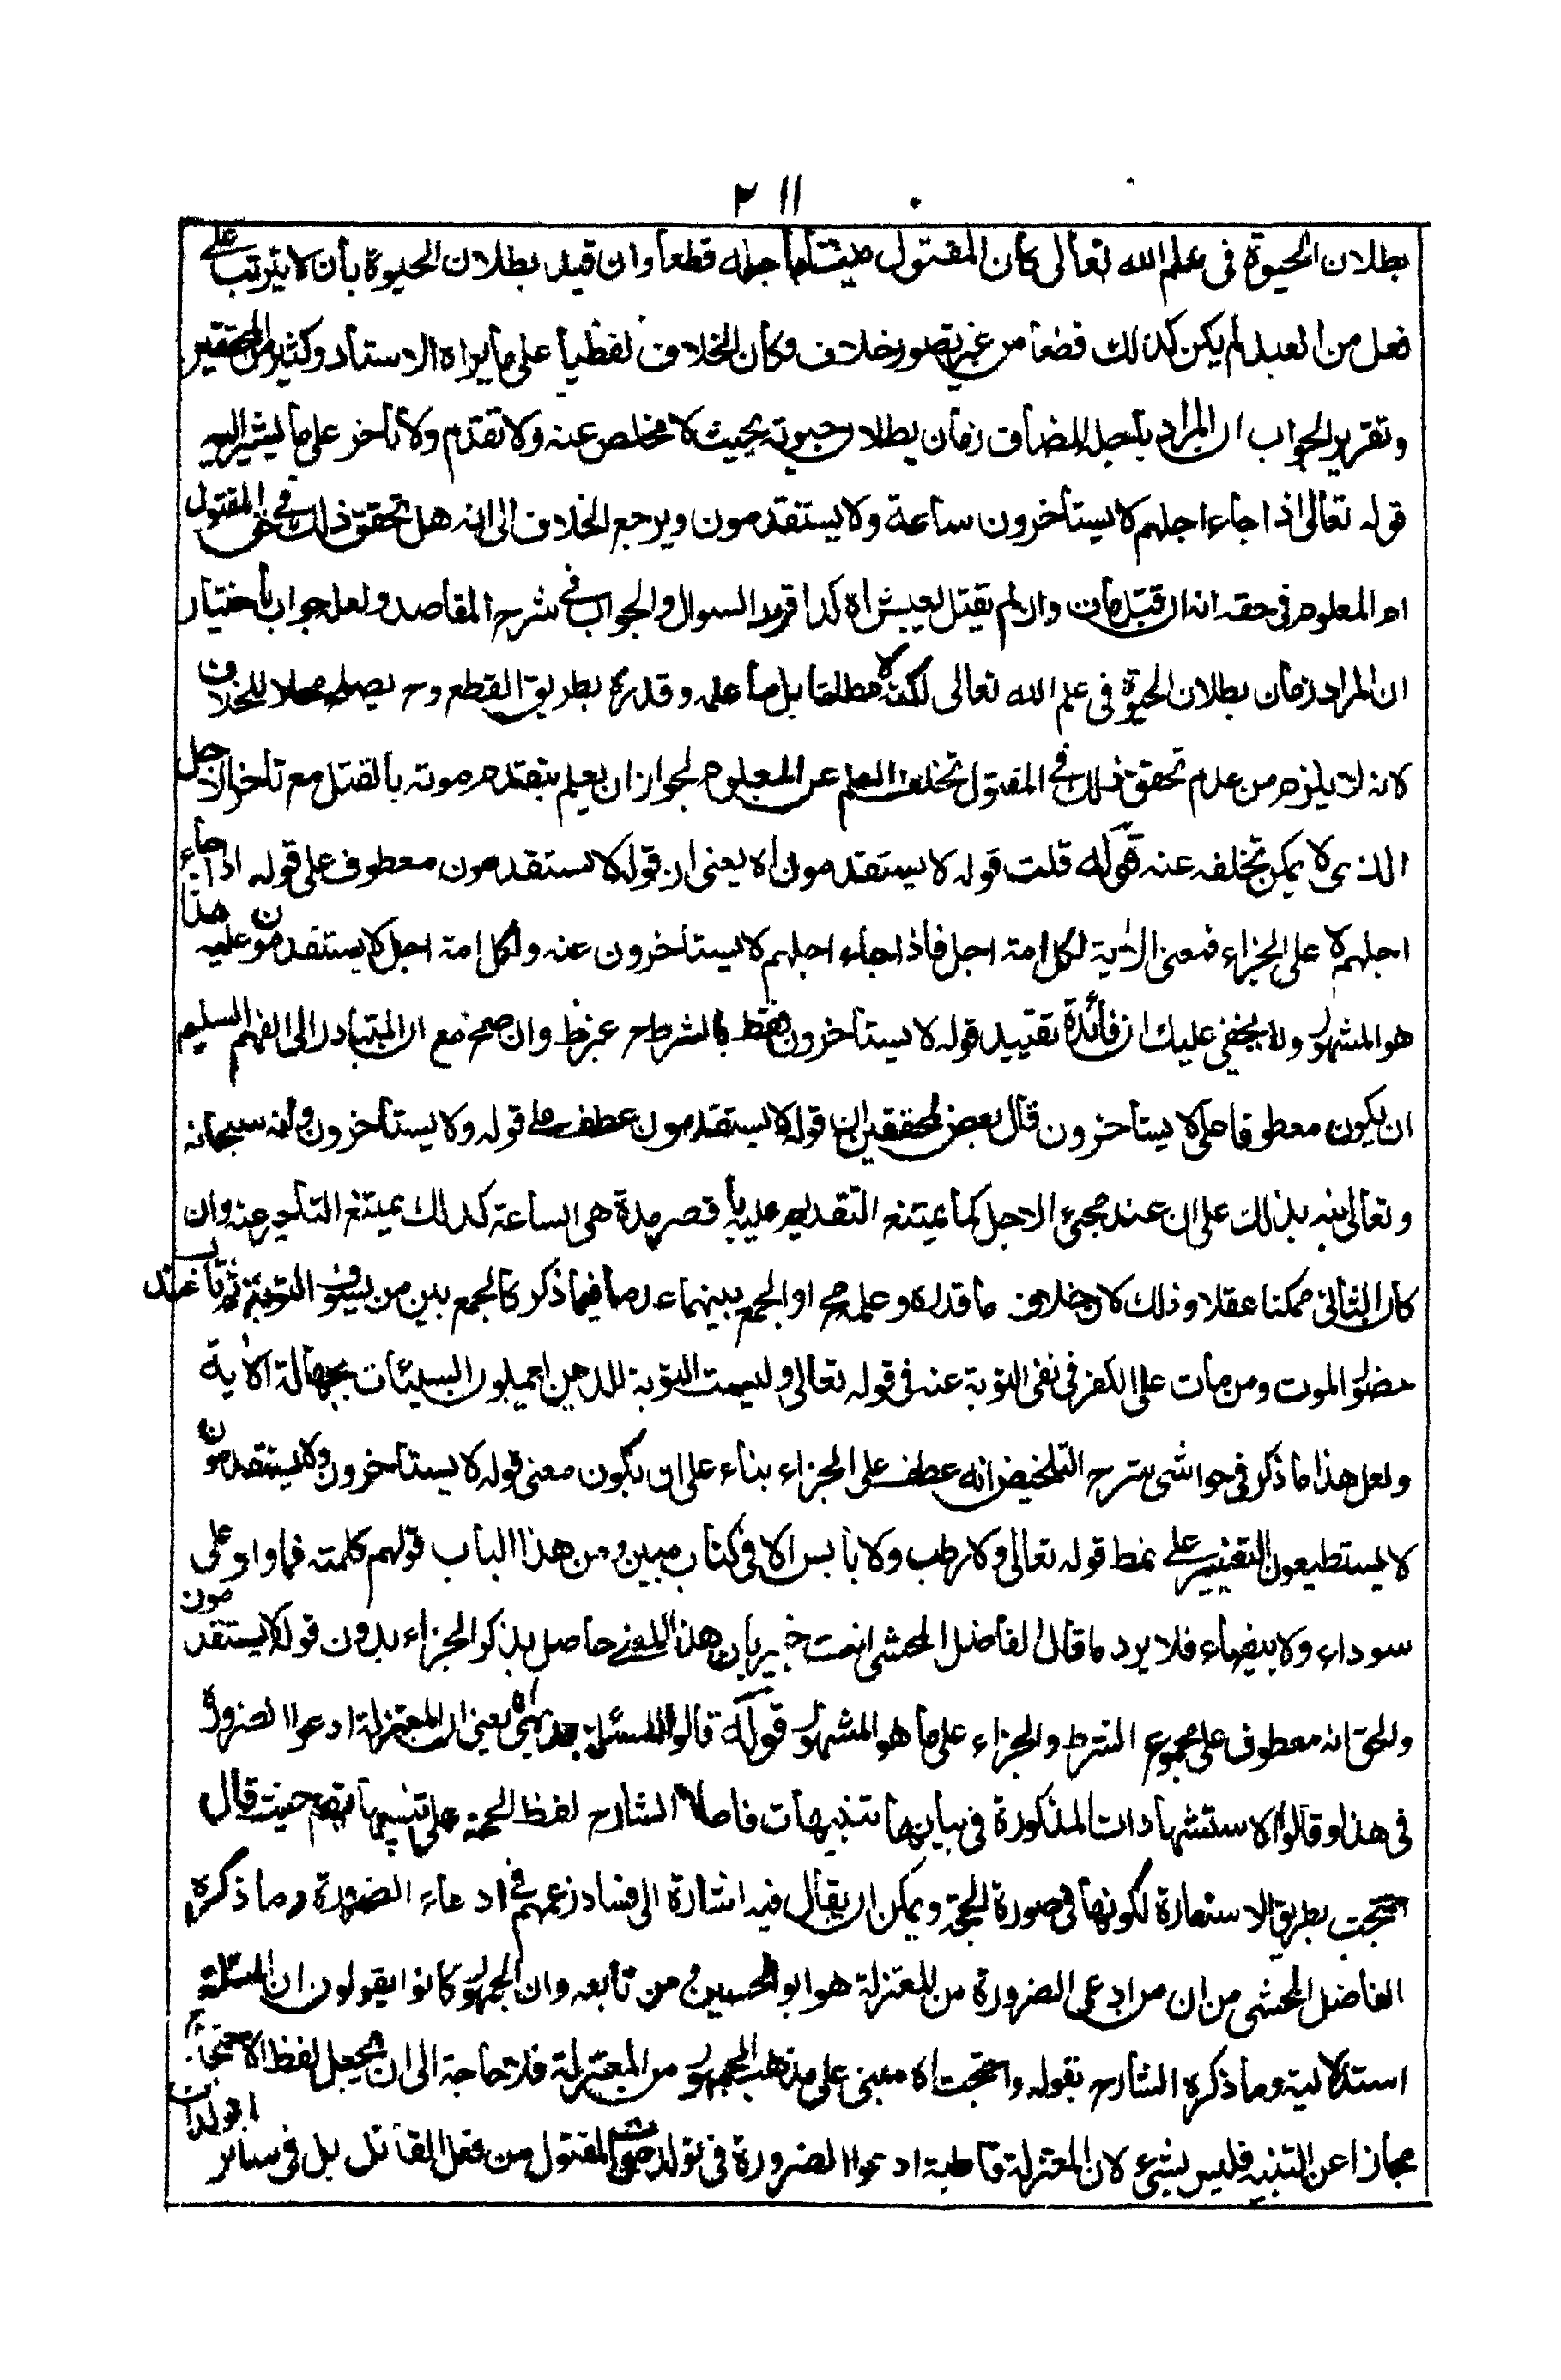 ٢١١
بطلان الحيوة فى علم الله تعالى كان المقتول ميتا باجله قطعا وان قيد بطلان الحيوة بأن لا يترتب على
فعل من العبد لم يكن كذلك قطعا من غير تصور خلاف وكان الخلاف لفظيا على ما يراه الاستاد وكثير من المحققين
وتقرير الجواب ان المراد باجل المضاف زمان بطلان حيوته بحيث لا مخلص عنه ولا تقدم ولا تأخر على ما يشير اليه
قوله تعالى اذا جاء اجلهم لا يستأخرون ساعة ولا يستقدمون ويرجع الخلاف الى انه هل تحقق ذلك فى حق المقتول
ام المعلوم فى حقه انه ان قتل مات وان لم يقتل يعيش اه كذا قرر السوال والجواب فى شرح المقاصد ولعل جواب باختيار
ان المراد زمان بطلان الحيوة فى علم الله تعالى لكنه لا مطلقا بل ما علمه وقدره بطريق القطع وح يصلح محلا للخلاف
لانه لا يلزم من عدم تحقق ذلك فى المقتول تخلف العلم عن المعلوم لجواز ان يعلم بتقدم موته بالقتل مع تأخر الاجل
الذى لا يمكن تخلفه عنه قوله قلت قوله لا يستقدمون اه يعنى ان قوله لا يستقدمون معطوف على قوله اذا جاء
اجلهم لا على الجزاء فمعنى الآية لكل امة اجل فاذا جاء اجلهم لا يستأخرون عنه ولكل امة اجل لا يستقدمون عليه هذا
هو المشهور ولا يخفى عليك ان فائدة تقييد قوله لا يستأخرون فقط بالشرط ح غير ظ وان صح مع ان المتبادر الى الفهم السليم
ان يكون معطوفا على لا يستأخرون قال بعض المحققين ان قوله لا يستقدمون عطف على قوله ولا يستأخرون وانه سبحانه
وتعالى نبه بذلك على ان عند مجئ الاجل كما يمتنع التقديم عليه باقصر مدة هى الساعة كذلك يمتنع التأخير عنه وان
كان الثانى ممكنا عقلا وذلك لان خلاف ما قدره وعلمه مح او الجمع بينهما فيما ذكر كالجمع بين من يسوف التوبة ثم تاب عند
حضور الموت ومن مات على الكفر فى نفى التوبة عنه فى قوله تعالى وليست التوبة للذين يعملون السيئات بجهالة الآية
ولعل هذا ما ذكر فى حواشى شرح التلخيص انه عطف على الجزاء بناء على ان يكون معنى قوله لا يستأخرون ولا يستقدمون
لا يستطيعون التغيير على نمط قوله تعالى ولا رطب ولا يابس الا فى كتاب مبين ومن هذا الباب قولهم كلمته فما رد على
سوداء ولا بيضاء فلا يرد ما قال الفاضل المحشى انت خبير بان هذا المعنى حاصل بذكر الجزاء بدون قوله لا يستقدمون
والحق انه معطوف على مجموع الشرط والجزاء على ما هو المشهور قوله قالوا المسئلة بديهى اه يعنى ان المعتزلة ادعوا الضرورة
فى هذا وقالوا الاستشهادات المذكورة فى بيانها تنبيهات فاطلاق الشارح لفظ الحجة على تنبيهاتهم حيث قال
احتجت بطريق الاستعارة لكونها فى صورة الحجة ويمكن ان يقال فيه اشارة الى فساد زعمهم فى ادعاء الضرورة وما ذكره
الفاضل المحشى من ان من ادعى الضرورة من المعتزلة هو ابو الحسين و من تابعه وان الجمهور كانوا يقولون ان المسئلة
استدلالية وما ذكره الشارح بقوله واحتجت اه مبنى على مذهب الجمهور من المعتزلة فلا حاجة الى ان يجعل لفظ الاحتجاج
مجازا عن التنبيه فليس بشئ لان المعتزلة قاطبة ادعوا الضرورة فى تولد موت المقتول من فعل القاتل بل فى سائر